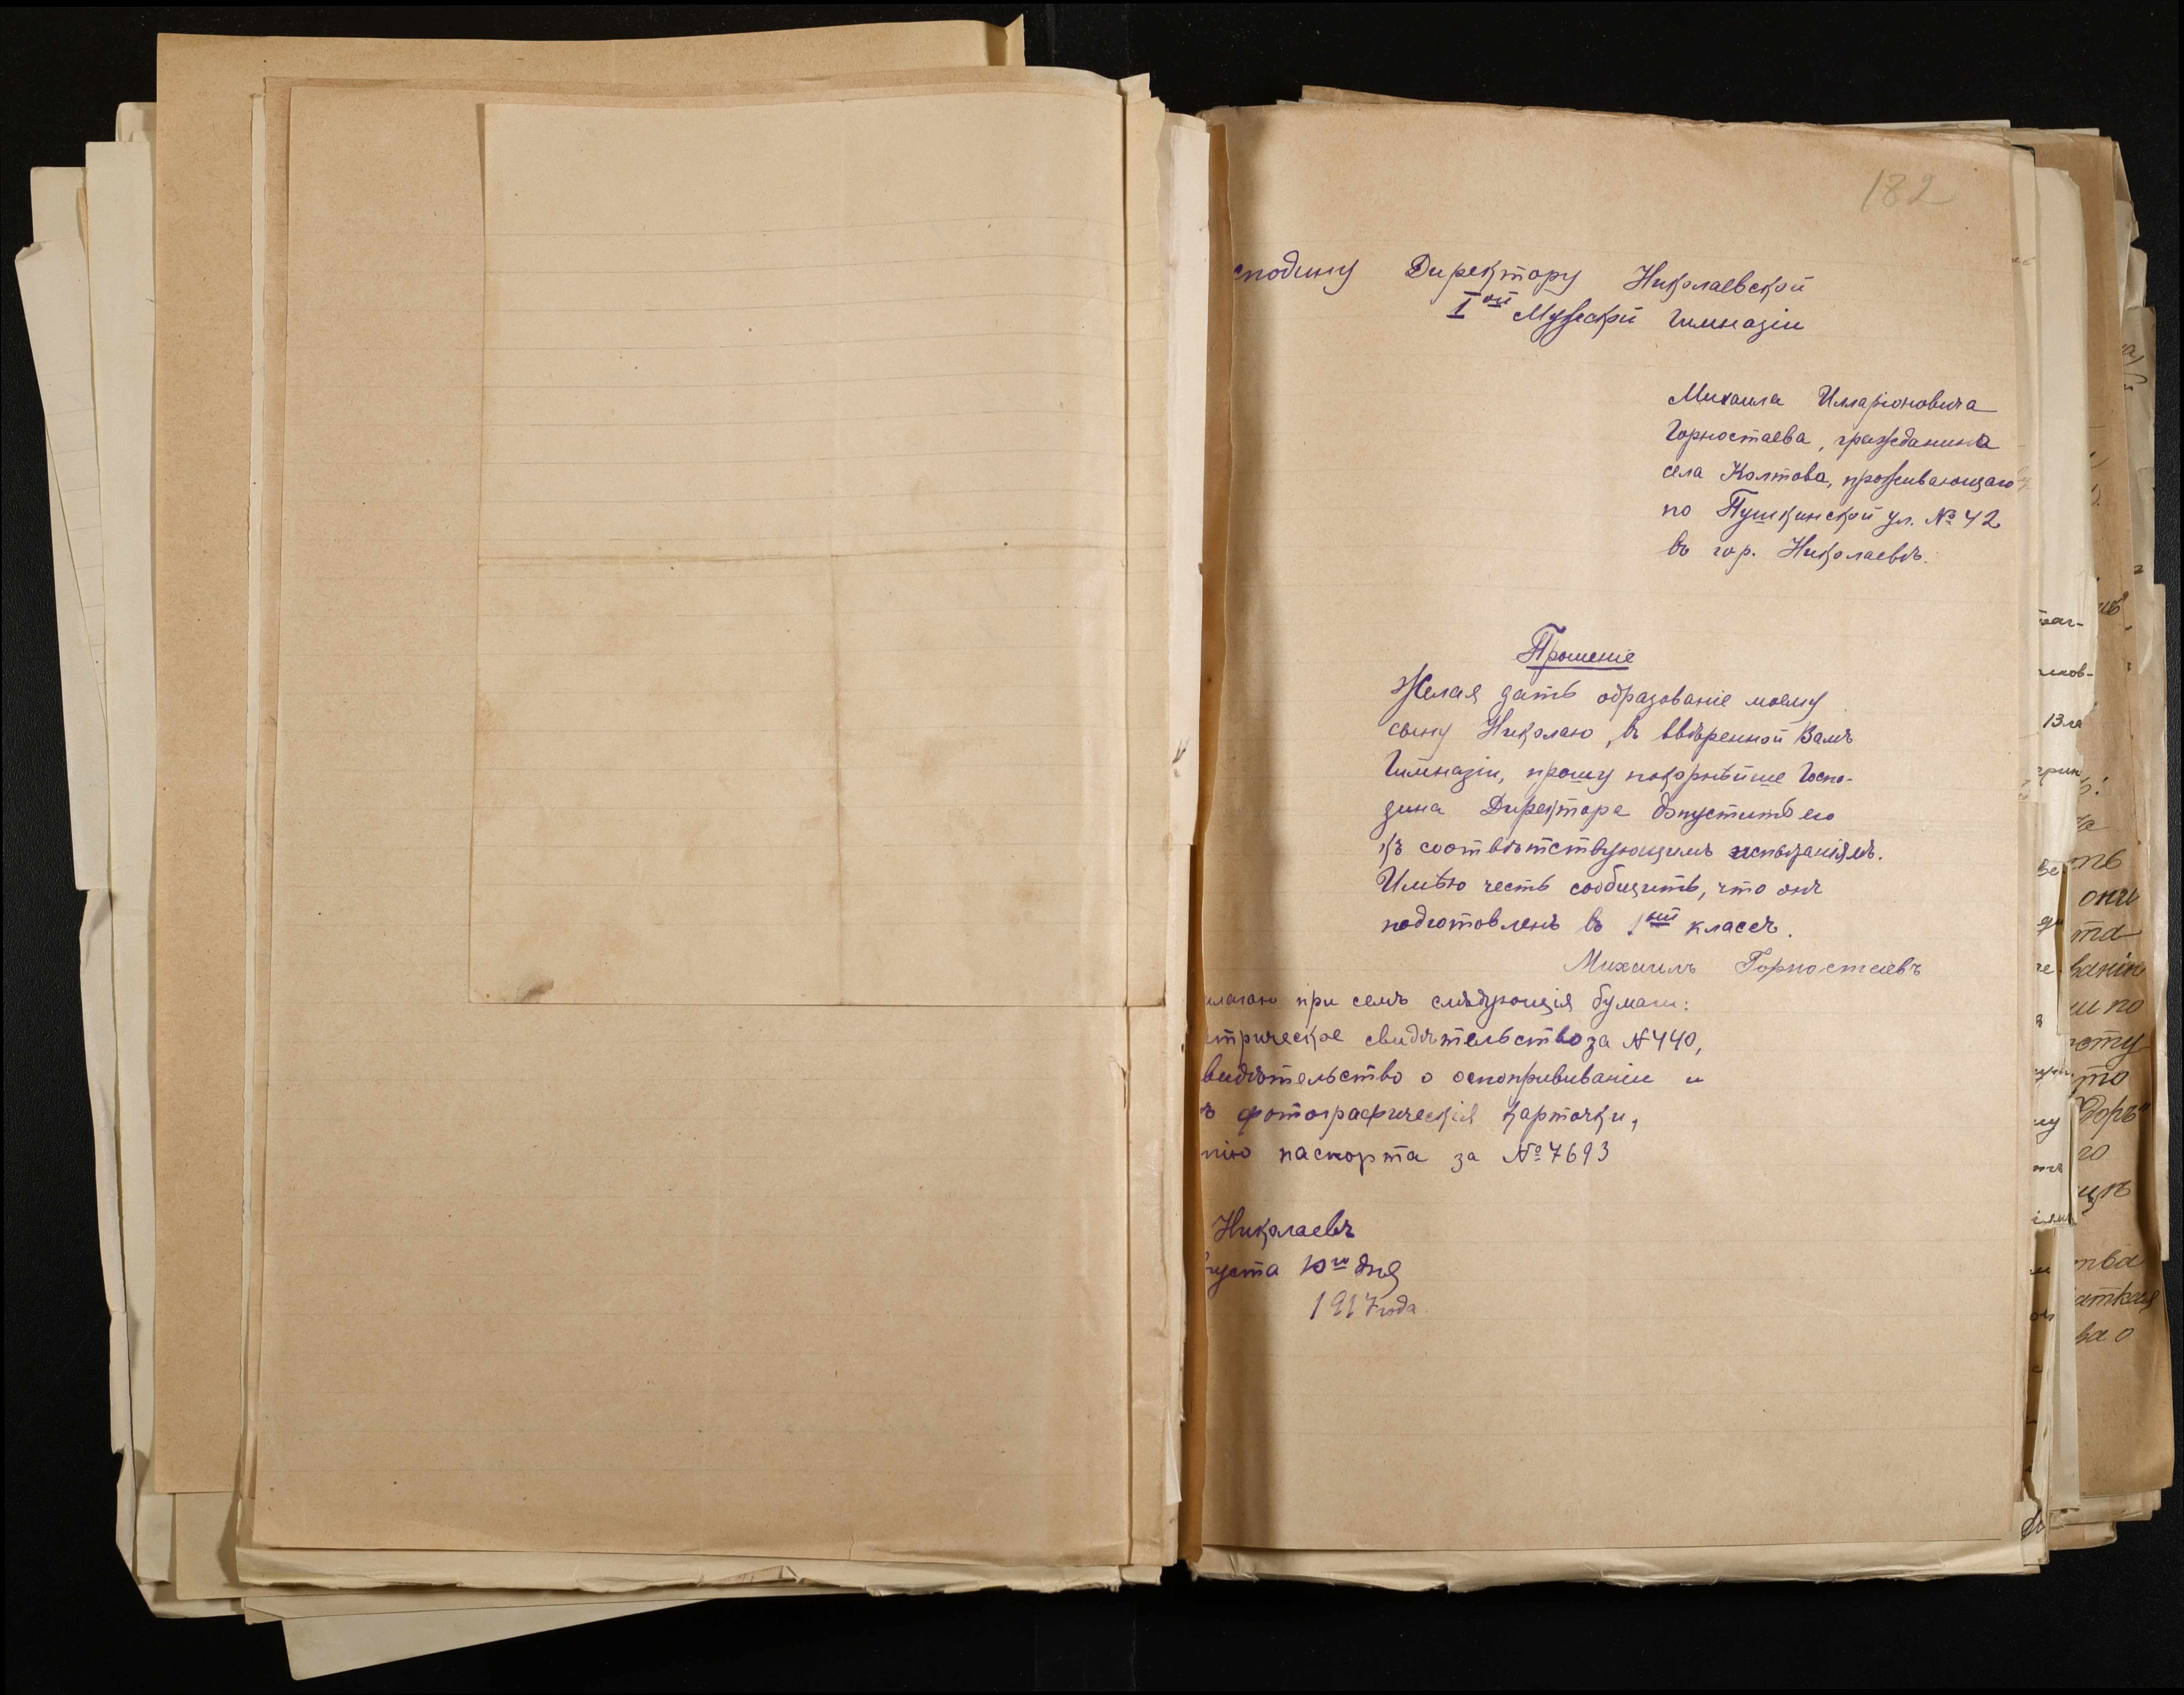 182
сподину Директору Николаевской
I ой Мужской Гимназіи
Михаила Илларіоновича
Горностаева, гражданина
села Колтова, проживающаго
по Пушкинской ул. № 42
въ гор. Николаевѣ.
Прошеніе
Желая дать образованіе моему
сыну Николаю, въ ввѣренной Вамъ
Гимназіи, прошу покорнѣйше Госпо-
дина Директора допустить его
къ соотвѣтствующимъ испытаніямъ.
Имѣю честь сообщить, что онъ
подготовленъ въ 1ый классъ.
Михаилъ Горностаевъ
илагаю при семъ слѣдующія бумаги:
трическое свидѣтельство за №440,
видѣтельство о оспопрививаніи и
ъ фотографическія карточки,
пію паспорта за №7693
Николаевъ
густа 10го дня
1917 года